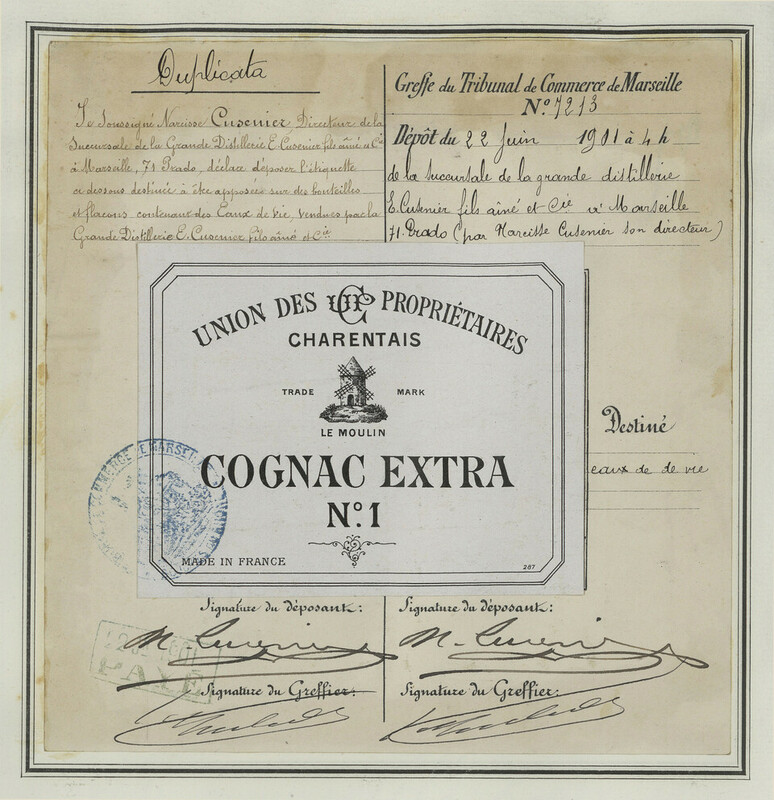 Duplicata
Je Soussigné Narcisse Cusenier, Directeur de la
Succursale de la Grande Distillerie E. Cusenier fils aîné & Cie
à Marseille, 71 Prado, déclare déposer l'étiquette
ci dessous destinée à être apposée sur des bouteilles
et flacons contenant des Eaux de Vie, vendues par la
Grande Distillerie E. Cusenier fils aîné et Cie
Greffe du Tribunal de Commerce de Marseille
N° 7213
Dépôt du 22 Juin 1901 à 4 h
de la succursale de la grande distillerie
E. Cusenier fils aîné et Cie à Marseille
71. Prado (par Narcisse Cusenier son directeur)
UNION DES UCP PROPRIÉTAIRES
CHARENTAIS
TRADE MARK
LE MOULIN
COGNAC EXTRA
N° 1
MADE IN FRANCE
287
Destiné
eaux de de vie
COMMERCE DE MARSEI
Signature du déposant:
Signature du déposant:
N. Cusenier
N. Cusenier
PAYÉ
Signature du Greffier:
Signature du Greffier: